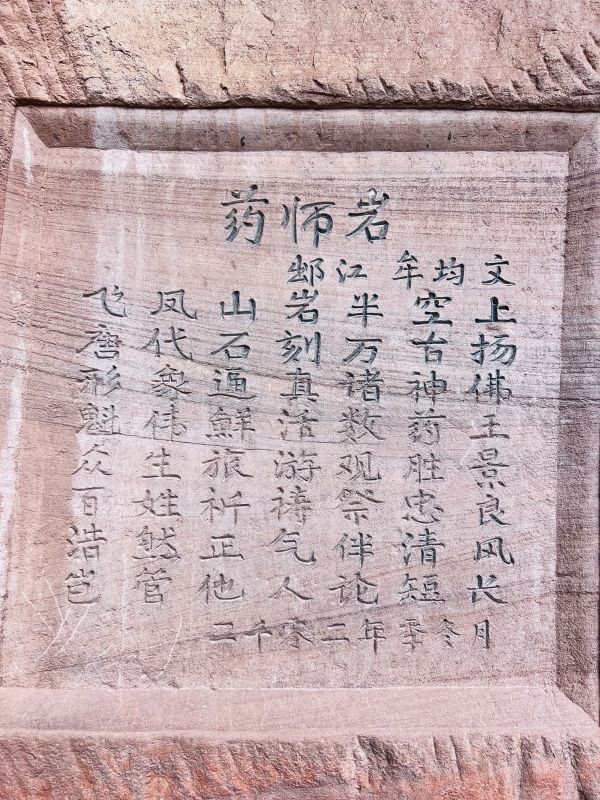 药师岩
䢺江 牟均文
飞凤山岩半空上
唐代石刻万台扬
形象逼真诸神佛
魁伟鲜活数药王
众生旅游观胜景
百姓祈祷祭忠良
浩然正气伴清风
岂管他人论短长
二千零二年季冬月